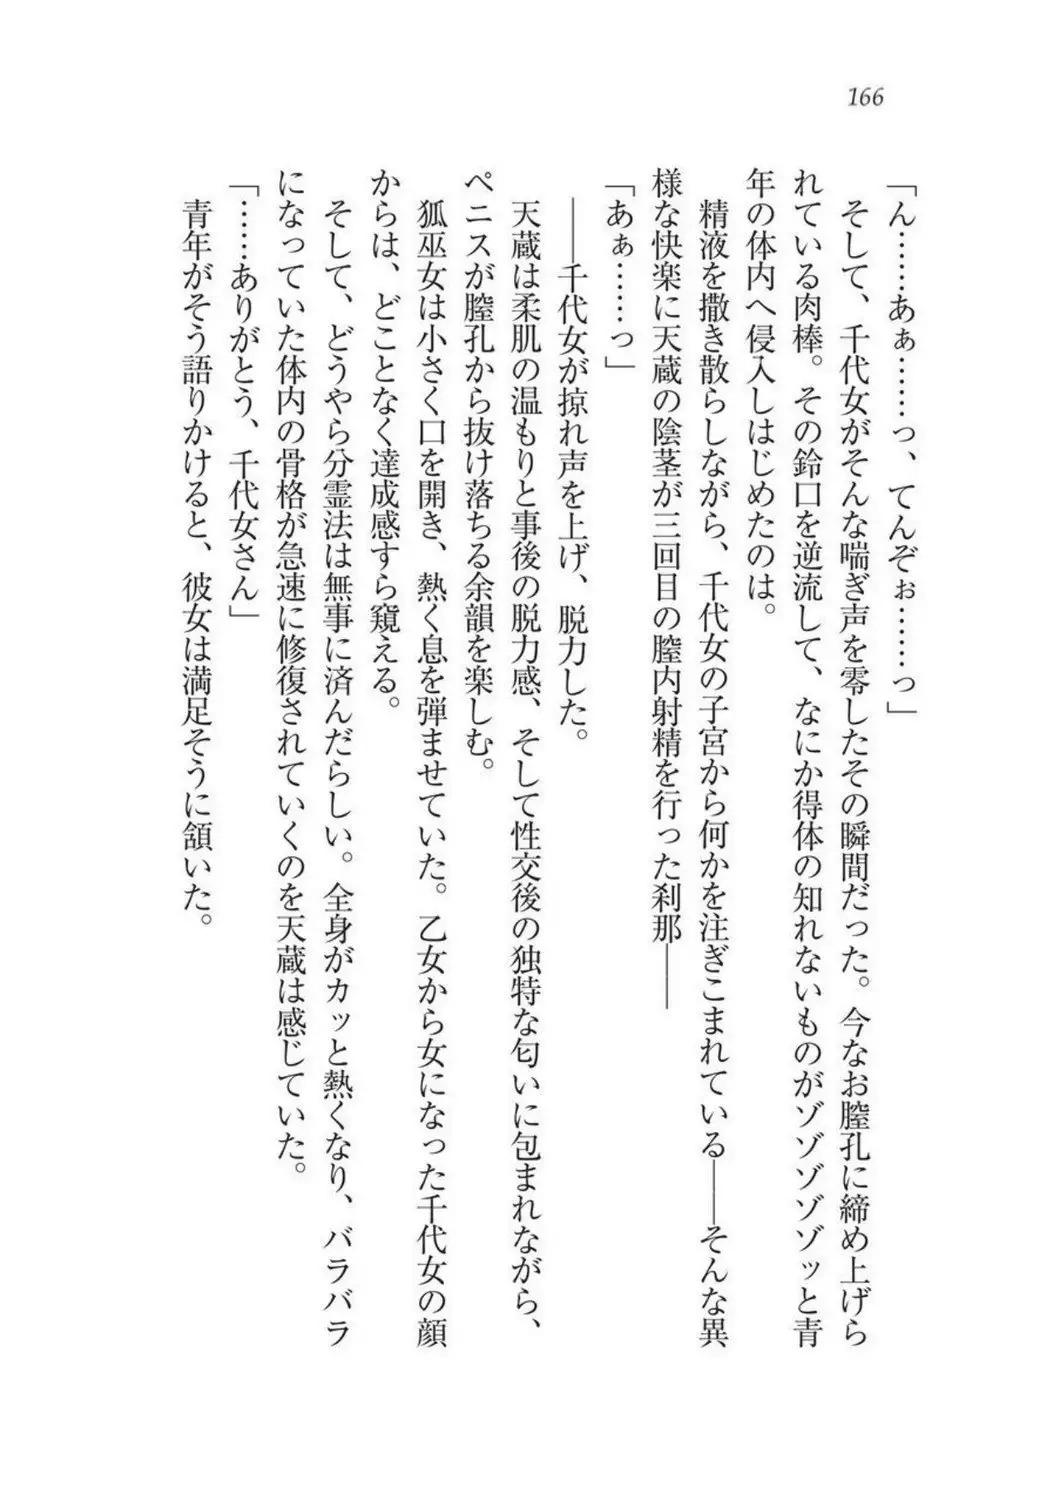 166
「ん……あぁ……っ、てんぞぉ……っ」
そして、千代女がそんな喘ぎ声を零したその瞬間だった。今なお膣孔に締め上げら
れている肉棒。その鈴口を逆流して、なにか得体の知れないものがゾゾゾゾゾッと青
年の体内へ侵入しはじめたのは。
精液を撒き散らしながら、千代女の子宮から何かを注ぎこまれている――そんな異
様な快楽に天蔵の陰茎が三回目の膣内射精を行った刹那――
「あぁ……っ」
――千代女が掠れ声を上げ、脱力した。
天蔵は柔肌の温もりと事後の脱力感、そして性交後の独特な匂いに包まれながら、
ペニスが膣孔から抜け落ちる余韻を楽しむ。
狐巫女は小さく口を開き、熱く息を弾ませていた。乙女から女になった千代女の顔
からは、どことなく達成感すら窺える。
そして、どうやら分霊法は無事に済んだらしい。全身がカッと熱くなり、バラバラ
になっていた体内の骨格が急速に修復されていくのを天蔵は感じていた。
「……ありがとう、千代女さん」
青年がそう語りかけると、彼女は満足そうに頷いた。